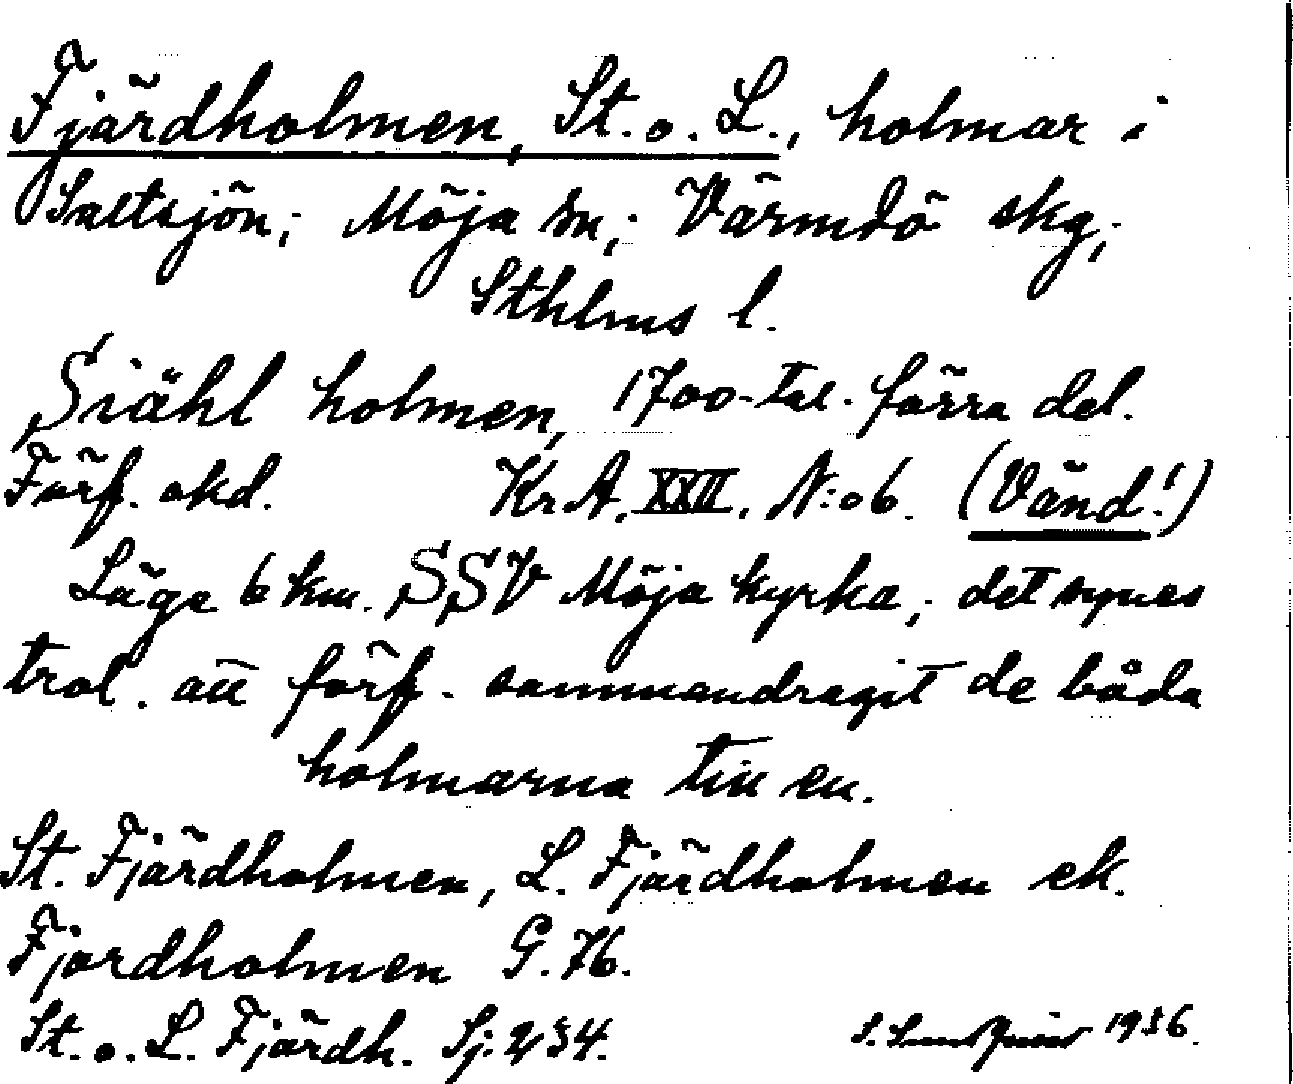 Fjärdholmen, St. o. L., holmar i
Saltsjön; Möja sn; Värmdö skg;
Sthlms l.
Siähl holmen, 1700-tal. förra del.
Förf. okd. Kr.A. XXII. N:o 6. (Vänd!)
Läge 6 km. SSV Möja kyrka; det synes
trol. att förf. sammandragit de båda
holmarna till en.
St. Fjärdholmen, L. Fjärdholmen ek.
Fjordholmen G. 76.
St. o. L. Fjärdh. Sj. 234. 1936.